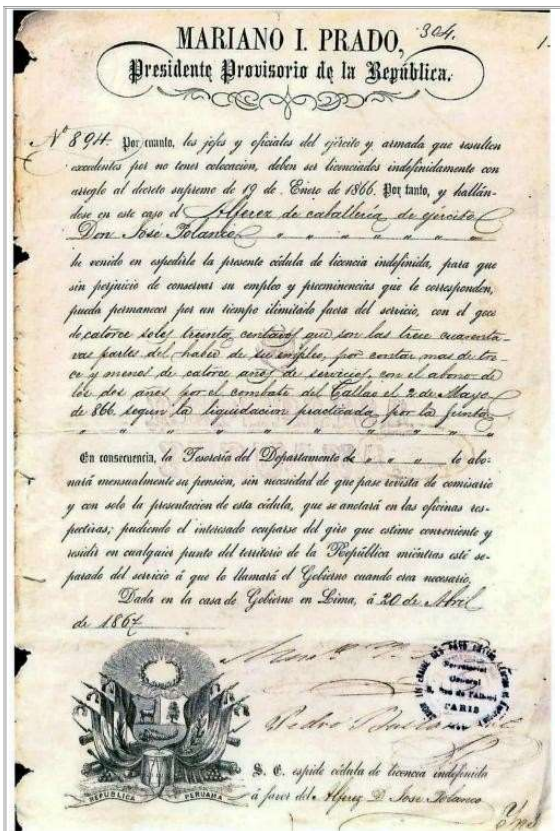 304.
1.
MARIANO I. PRADO,
Presidente Provisorio de la República.
Nº 894. Por cuanto, los jefes y oficiales del ejército y armada que resulten
excedentes por no tener colocacion, deben ser licenciados indefinidamente con
arreglo al decreto supremo de 19 de Enero de 1866. Por tanto, y hallán-
dose en este caso el Alferez de caballeria de ejercito
Don Jose Polanco " " " " " " "
he venido en espedirle la presente cédula de licencia indefinida, para que
sin perjuicio de conservar su empleo y preeminencias que le corresponden,
pueda permanecer por un tiempo ilimitado fuera del servicio, con el goce
de catorce soles treinta centavos que son las trece cuarenta-
vas partes del haber de su empleo, por contar mas de tre-
ce y menos de catorce años de servicios, con el abono de
los dos años por el combate del Callao el 2 de Mayo
de 866, segun la liquidacion practicada por la junta
" " " " " " " " " "
En consecuencia, la Tesorería del Departamento de " " " le abo-
nará mensualmente su pensión, sin necesidad de que pase revista de comisario
y con solo la presentacion de esta cédula, que se anotará en las oficinas res-
pectivas; pudiendo el interesado ocuparse del giro que estime conveniente y
residir en cualquier punto del territorio de la República miéntras esté se-
parado del servicio á que lo llamará el Gobierno cuando crea necesario.
Dada en la casa de Gobierno en Lima, á 20 de Abril
de 1867
General
PARIS
Pedro
REPÚBLICA PERUANA
S. E. espide cédula de licencia indefinida
á favor del Alferez D. Jose Polanco